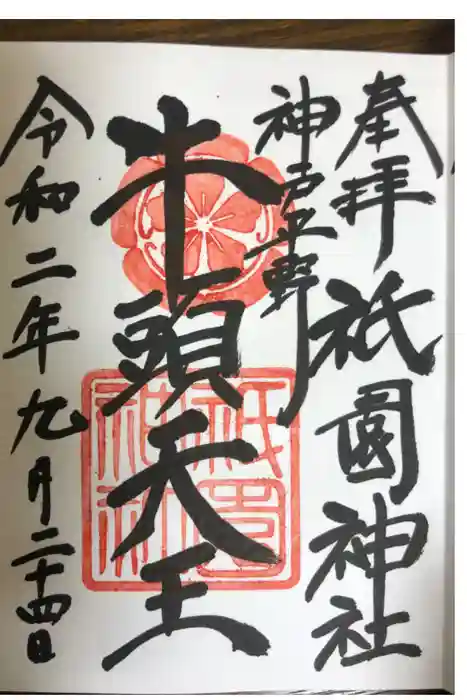 奉拝 祇園神社
神戸平野
牛頭天王
祇園
神社
令和二年九月二十四日